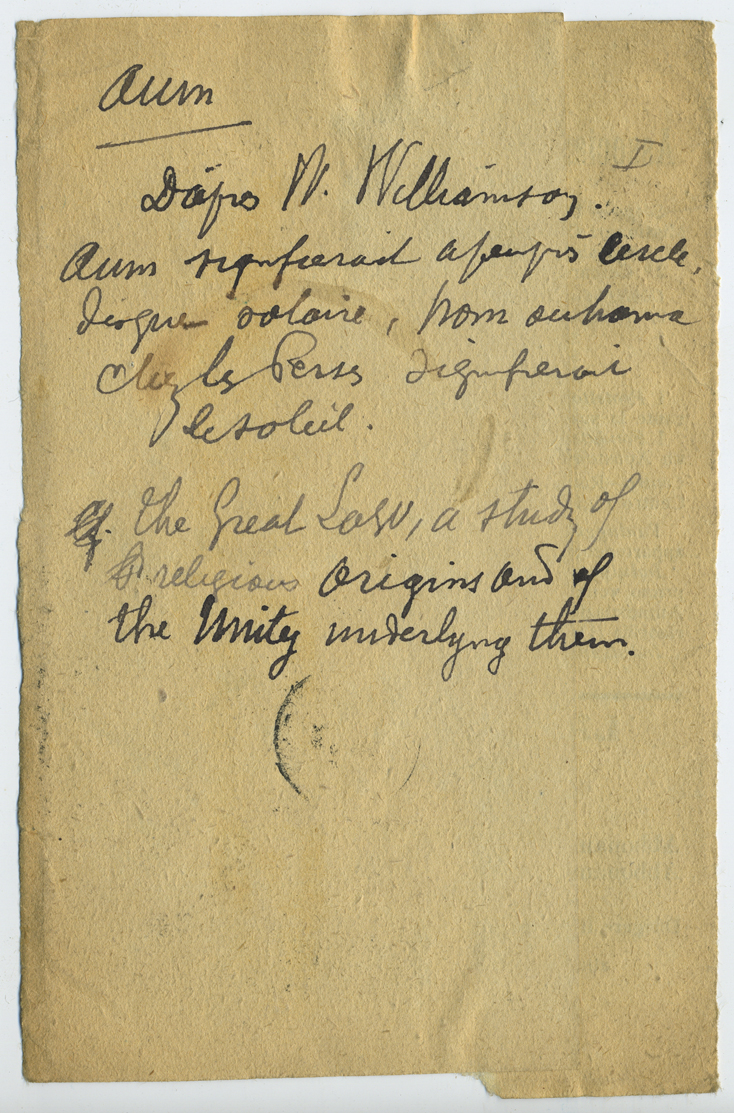 Aum
I
D'après W. Williamson.
Aum signifierait à peu près cercle,
disque solaire, hom ou homa
chez les Perses signifierait
le soleil.
cf. the Great Law, a study of
religious origins and of
the Unity underlyng them.